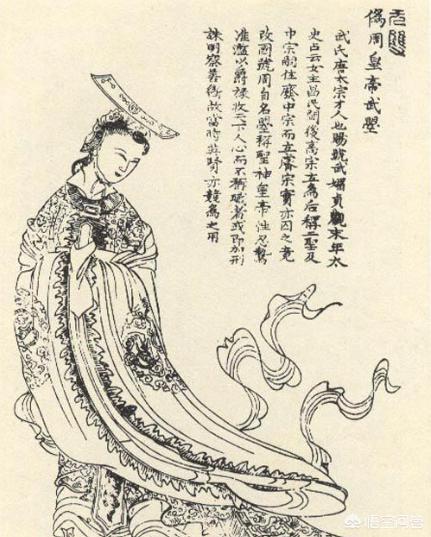 无雙
偽周皇帝武曌
武氏唐太宗才人也賜號武媚貞觀末年太
史占云女主昌民間後高宗立為后稱二聖及
中宗嗣位廢中宗而立睿宗實亦囚之竟
改國號周自名曌稱聖神皇帝性忍鷙
准濫以爵祿收天下人心而不稱職者或即加刑
誅明察善斷故當時英賢亦競為之用
悟空问答